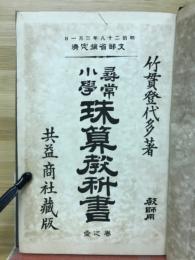 明治二十八年三月一日
文部省檢定濟
竹貫登代多著
尋常
小學
珠算教科書
教師用
卷之壹
共益商社藏版